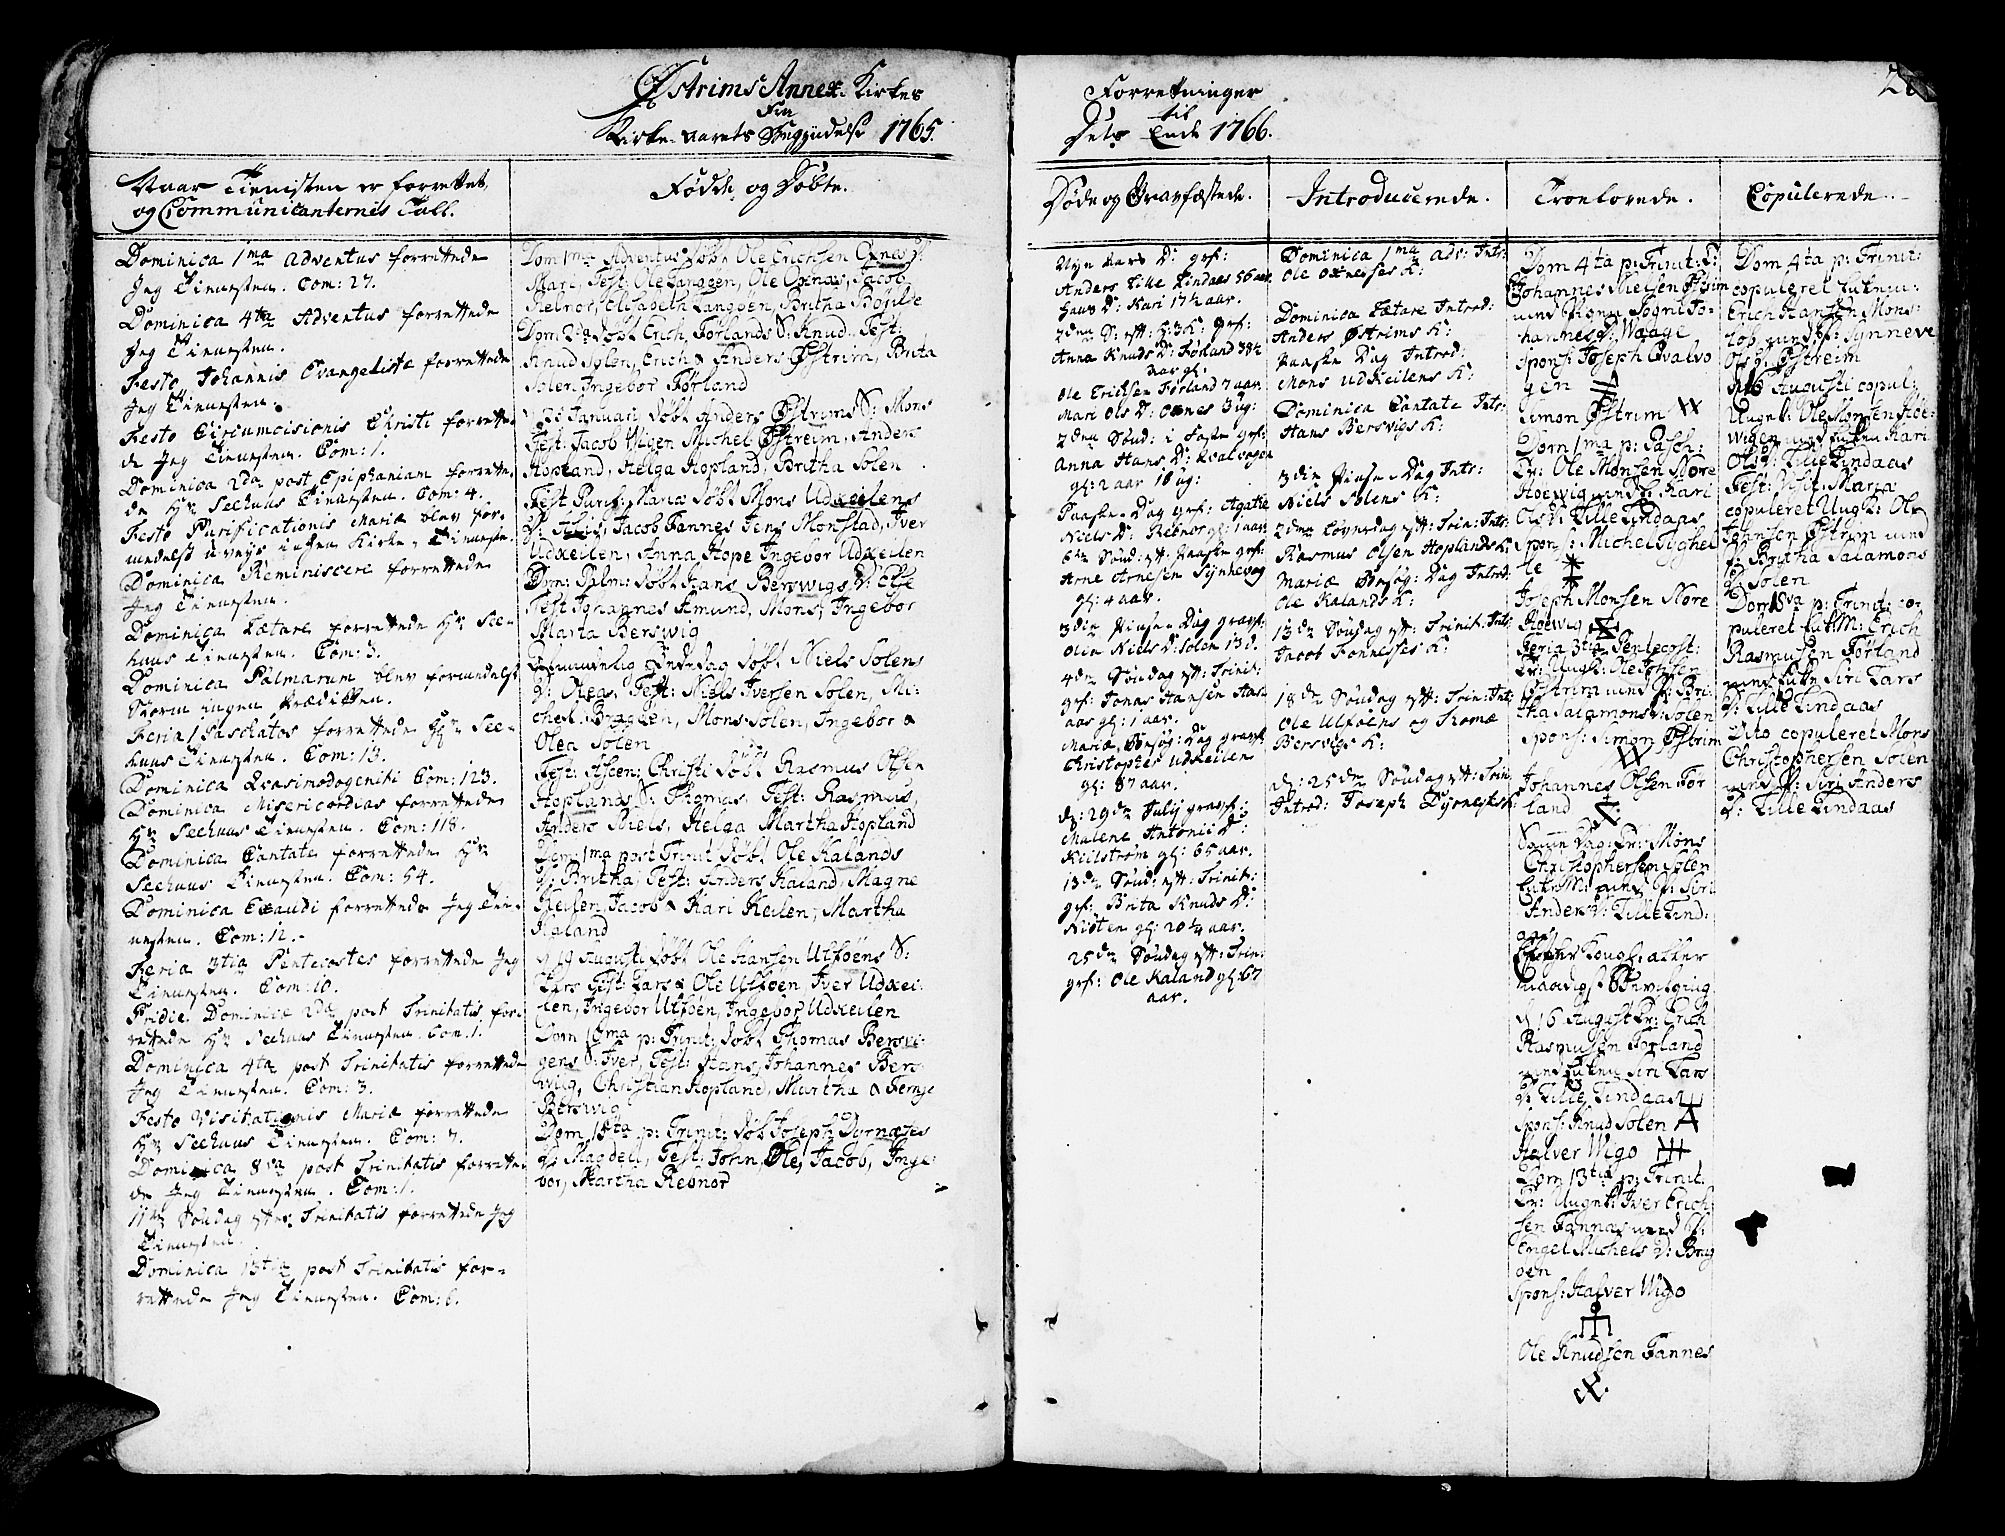 Østrims Annex-Kirkes
Fra
Kirke-aarets Begyndelse 1765.
Naar Tienisten er forrettet,
og Communicanternes Tall.
Fødde og Døbte.
Dominica 1ma Adventus forrettede
Jeg Tienesten. Com: 27.
Dominica 4ta Adventus forrettede
Jeg Tienesten.
Festo Johannis Evangelistæ forrettede
Jeg Tienesten.
Festo Circumcisionis Christi forrette-
de Jeg Tienesten. Com: 1.
Dominica 2da post Epiphaniam forrette-
de Hr Seehuus Tienesten. Com: 4.
Festo Purificationis Mariæ blev for-
Dominica Reminiscere forrettede
Jeg Tienesten.
Dominica Lætare forrettede Hr See-
huus Tienesten. Com: 3.
Dominica Palmarum blev formedelst
Storm ingen Prædiken.
Feria 1 Paschatos forrettede Hr See-
huus Tienesten. Com: 13.
Dominica Qvasimodogeniti Com: 123.
Dominica Misericordias forrettede
Hr Seehuus Tienesten. Com: 118.
Dominica Cantate forrettede Hr
Seehuus Tienesten. Com: 54.
Dominica Exaudi forrettede Jeg Tie-
nesten. Com: 12.
Feria 3tia Pentecostes forrettede Jeg
Tienesten. Com: 10.
Pridie Dominicæ 2dæ post Trinitatis for-
rettede Hr Seehuus Tienesten. Com: 1.
Dominica 4ta post Trinitatis forrettede
Jeg Tienesten. Com: 3.
Festo Visitationis Mariæ forrettede
Hr Seehuus Tienesten. Com: 7.
Dominica 8va post Trinitatis forrette-
de Jeg Tienesten. Com: 1.
11te Søndag efter Trinitatis forrettede Jeg
Tienesten.
Dominica 13tia post Trinitatis for-
rettede Jeg Tienesten. Com: 6.
Dom 1ma Adventus døbt Ole Erichsen Oxnas D:
Mari, Test: Ole Langøen, Ole Oxnas, Jacob
Rebnor, Elisabeth Langøen, Britha Bogilde
Dom 2da døbt Erich Førlands S: Knud. Test:
Knud Solen, Erich & Anders Østrim, Brita
Solen Ingebor Førland
Januarij døbt Anders Østrims S: Mons
Test: Jacob Wigen Michel Østreim, Anders
Hopland, Helga Hopland, Britha Solen
Fest Purif: Mariæ døbt Mons Udkeilens
Jacob Fannes Jens Monstad, Iver
Udkeilen, Anna Hope Ingebor Udkeilen
Dom: Palm: døbt Hans Berswigs D: Else
Test Johannes Amund, Mons, Ingebor
Marta Berswig
døbt Niels Solens
D: Olea, Test: Niels Iversen Solen, Mi-
chel Bragøen, Mons Solen, Ingebor &
Olea Solen
Fest: Ascen: Christi døbt Rasmus Olsen
Hoplands S: Thomas, Test: Rasmus,
Anders Niels, Helga Martha Hopland
Dom 1ma post Trinit døbt Ole Kalands
D: Britha, Test: Anders Kaland, Magne
Keilen, Jacob & Kari Keilen, Martha
Kaland
d 19 Augusti døbt Ole Hansen Ulføens S:
Lars Test: Lars & Ole Ulføen, Iver Udkei-
len, Ingebor Ulføen, Ingebor Udkeilen
p: Trinit: døbt Thomas Berswi-
gens S: Iver, Test: Hans, Johannes Bers-
wiig, Christian Hopland, Martha &
Berswig
p: Trinit: døbt Joseph Dyrnæses
D: Magdeli, Test: John, Ole, Jacob, Inge-
bor, Martha Rebnor
Forretninger
til
Dets Ende 1766.
Døde og Gravfæstede.
Introducerede.
Troelovede.
Copulerede.
Nyt aars D: grf:
Anders Lille Lindaas 56 aar
hans D: Kari 17½ aar.
Anna Knuds D: Førland 38½
aar gl.
Ole Erichsen Førland 7 aar
Mari Ols D: Oxnes 3 ug:
2den Sønd: i Faste grf:
Anna Hans D: Qvalvogen
gl: 2 aar 16 ug:
Paaske-Dag grf: Agathe
Niels D: Rebnor gl: 1 aar
6te Sønd: eft: Paaske grf:
Arne Arnesen Synnevag
gl: 4 aar.
3die Pinse-Dag gravf:
Olea Niels D: Solen 13 d.
4de Søndag eft: Trinit:
grf: Jonas Hansen Aar-
aas gl: 1 aar.
Mariæ Besøg: Dag gravf:
Christopher Udkeilen
gl: 87 aar.
d: 29de Julij gravf:
Malene Antonii D:
Kiilstrøm gl: 65 aar.
13de Sønd: eft: Trinit:
grf: Brita Knuds D:
Kiøten gl: 20¼ aar.
25de Søndag eft: Trin:
grf: Ole Kaland gl: 67
aar.
Dominica 1ma Adv: Intr:
Ole Oxneses K:
Dominica Lætare Introd:
Anders Østrims K:
Paaske Dag Introd:
Mons Udkeilens K:
Dominica Cantate Intr:
Hans Bersvigs K:
3die Pinse-Dag Intr:
Niels Solens K:
2den Søndag eft: Trin: Intr:
Rasmus Olsen Hoplands K:
Mariæ Besøg: Dag Introd:
Ole Kalands K:
13de Søndag eft: Trinit: Intr:
Jacob Fanneses K:
18de Søndag eft: Trin: Intr:
Ole Ulføens og Thomæ
Bersvigs K:
d: 25de Søndag eft: Trin:
Introd: Joseph Dyrnes K:
Dom 4ta p: Trinit: Tr:
Johannes Nielsen Østrim
med Pigen Sogni Jo-
hannes D: Waage
Spons: Joseph Qvalvo
gen
Simon Østrim
Dom 1ma p: Pasch:
Tr: Ole Monsen Nore
Hoewig med P: Kari
Ols D: Lille Lindaas
Spons: Michel Tyghel
le
Joseph Monsen Nore
Hoewig
Feria 3tia Pentecost:
Tr: Ungk: Ole Johsen
Østrim med P: Bri-
tha Salamons D: Solen
Spons: Simon Østrim
Johannes Olsen Før
land
Tr: Mons
Christophersen Solen
EnkeM: med P: Siri
Anders D: Lille Lind-
aas
Efter Kongl: aller
naadigst Bevilgning
d 16 August Tr: Erich
Rasmusen Førland
med Enken Siri Lars
D: Lille Lindaas
Spons: Knud Solen
Halver Wigo
Dom 13tia p: Trinit:
Tr: Ungk: Iver Erich
sen Fannas med P:
Engel Michels D: Brag
øen
Spons: Halver Wigo
Ole Knudsen Fannes
Dom 4ta p: Trinit:
copuleret
Erich Hansen Mons-
med P: Synneve
Ols D: Østreim
Augusti copul:
Ungk: Ole Monsen Hoe-
wigen med Enken Kari
Ols D: Lille Lindaas
Fest: Visit: Maria
copuleret Ungk: Ole
Johnsen Østrim med
P: Britha Salamons
D: Solen
Dom 8va p: Trinit: co-
puleret EnkM: Erich
Rasmusen Førland
med Enken Siri Lars
D: Lille Lindaas
Dito copuleret Mons
Christophersen Solen
med P: Siri Anders
D: Lille Lindaas